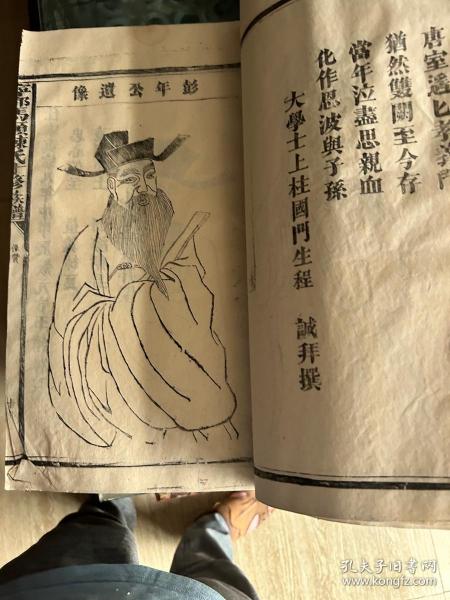 唐室遥
猶然雙闕至今存
當年泣盡思親血
化作恩波與子孫
大學士上柱國門生程 誠拜撰
彭年公遺像
氏 修族譜
像贊
孔夫子旧书网
www.kongfz.com